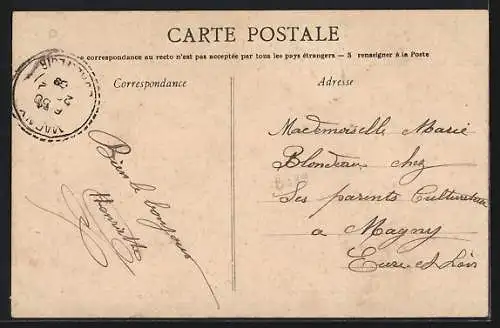 CARTE POSTALE
a correspondance au recto n'est pas acceptée par tous les pays étrangers — S renseigner à la Poste
Correspondance
Adresse
Bien le bonjour
Henriette
Mademoiselle Marie
Blondeau chez
Ses parents Cultivateur
a Magny
Eure et Loir
MAGNY